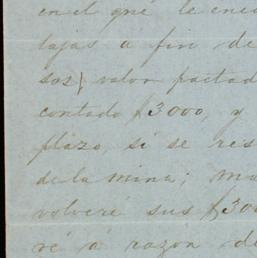 en el que le
lajas a fin de
sos) valor pactad
contado $3000, y
plazo, si se res
de la mina; ma
volveré sus $300
ré á razon de